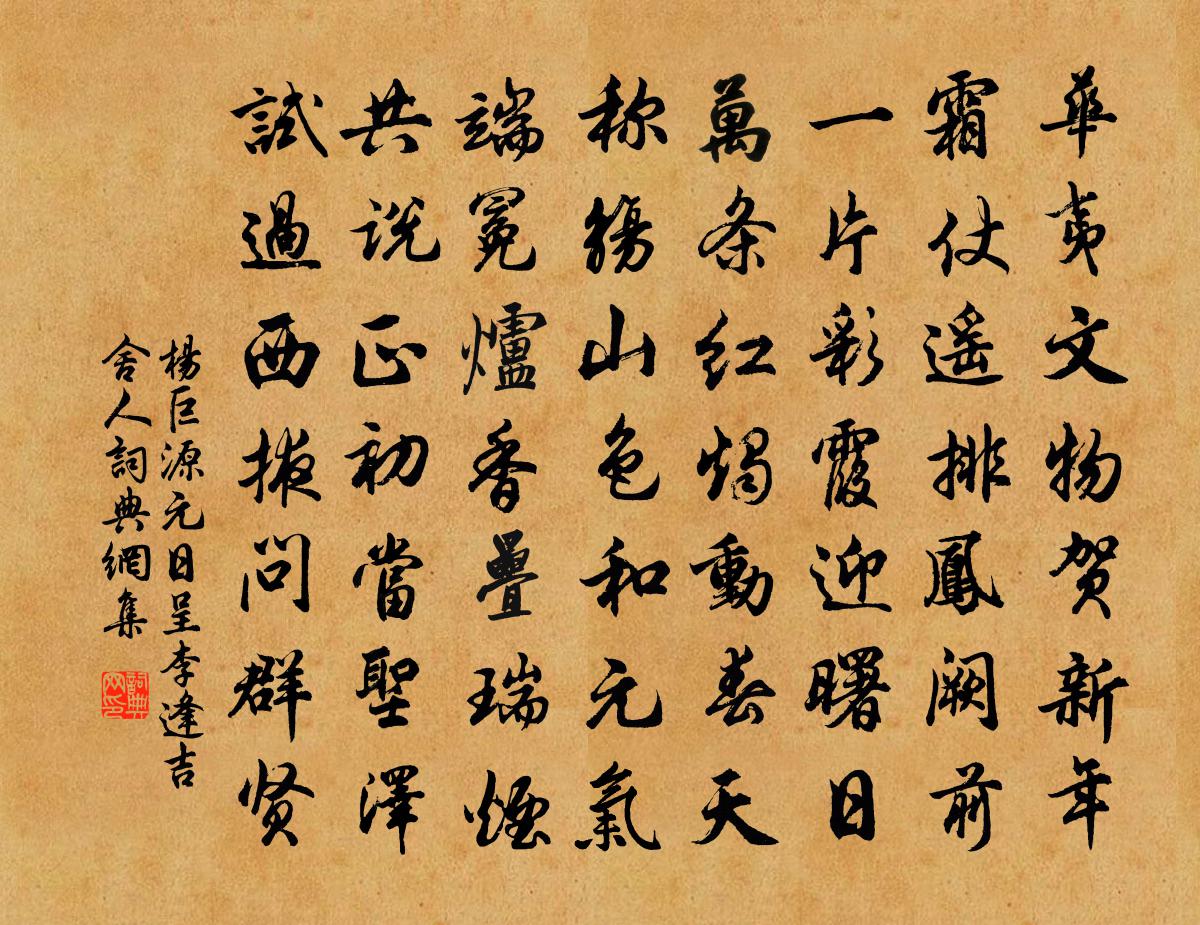 華夷文物贺新年
霜仗遥排鳳阙前
一片彩霞迎曙日
萬条红燭動春天
称觴山色和元氣
端冕爐香疊瑞煙
共说正初當聖澤
試過西掖问群贤
楊巨源元日呈李逢吉
舍人詞典網集
詞典网印